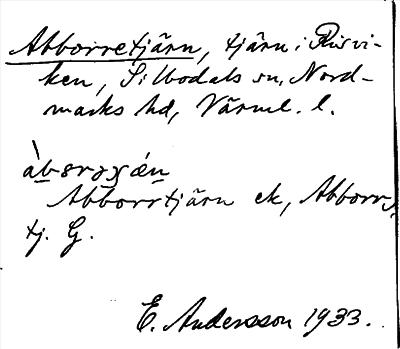 Abborretjärn, tjärn i Risvi-
ken, Silbodals sn, Nord-
marks hd, Värml. l.
Abborrtjärn ek, Abborr
tj. G.
E. Andersson 1933.